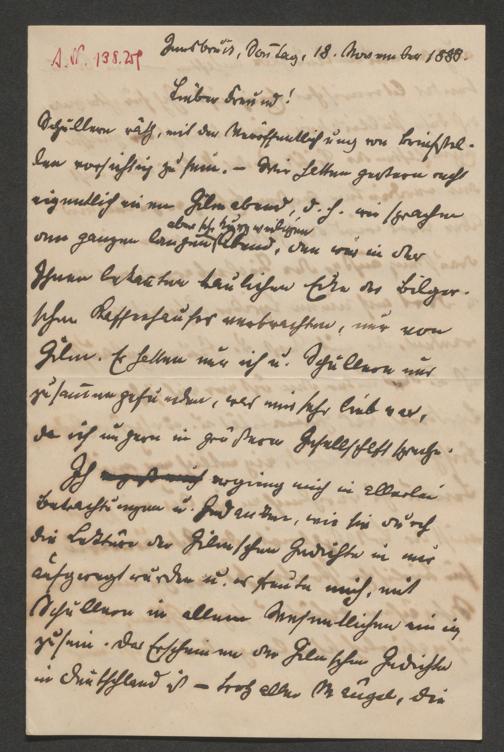 A. N. 138.259
Innsbruck, Sontag, 18. November 1888.
Lieber Freund!
Schullern räth, mit der Veröffentlichung von Briefstel-
len vorsichtig zu sein. – Wir hatten gestern recht
eigentlich einen Gilmabend, d. h. wir sprachen
aber sehr kurzweiligen
den ganzen langen Abend, den wir in der
Ihnen bekannten traulichen Ecke des Bilger-
schen Kaffeehauses verbrachten, nur von
Gilm. Es hatten nur ich u. Schullern uns
zusammengefunden, was mir sehr lieb war,
da ich ungern in größern Gesellschaft spreche.
Ich ergieng mich in allerlei
Betrachtungen u. Gedanken, wie sie durch
die Lektüre der Gilmschen Gedichte in mir
aufgeregt wurden u. es freute mich, mit
Schullern in allem Wesentlichen einig
zu sein. Das Erscheinen der Gilmschen Gedichte
in Deutschland ist – trotz aller Mängel, die